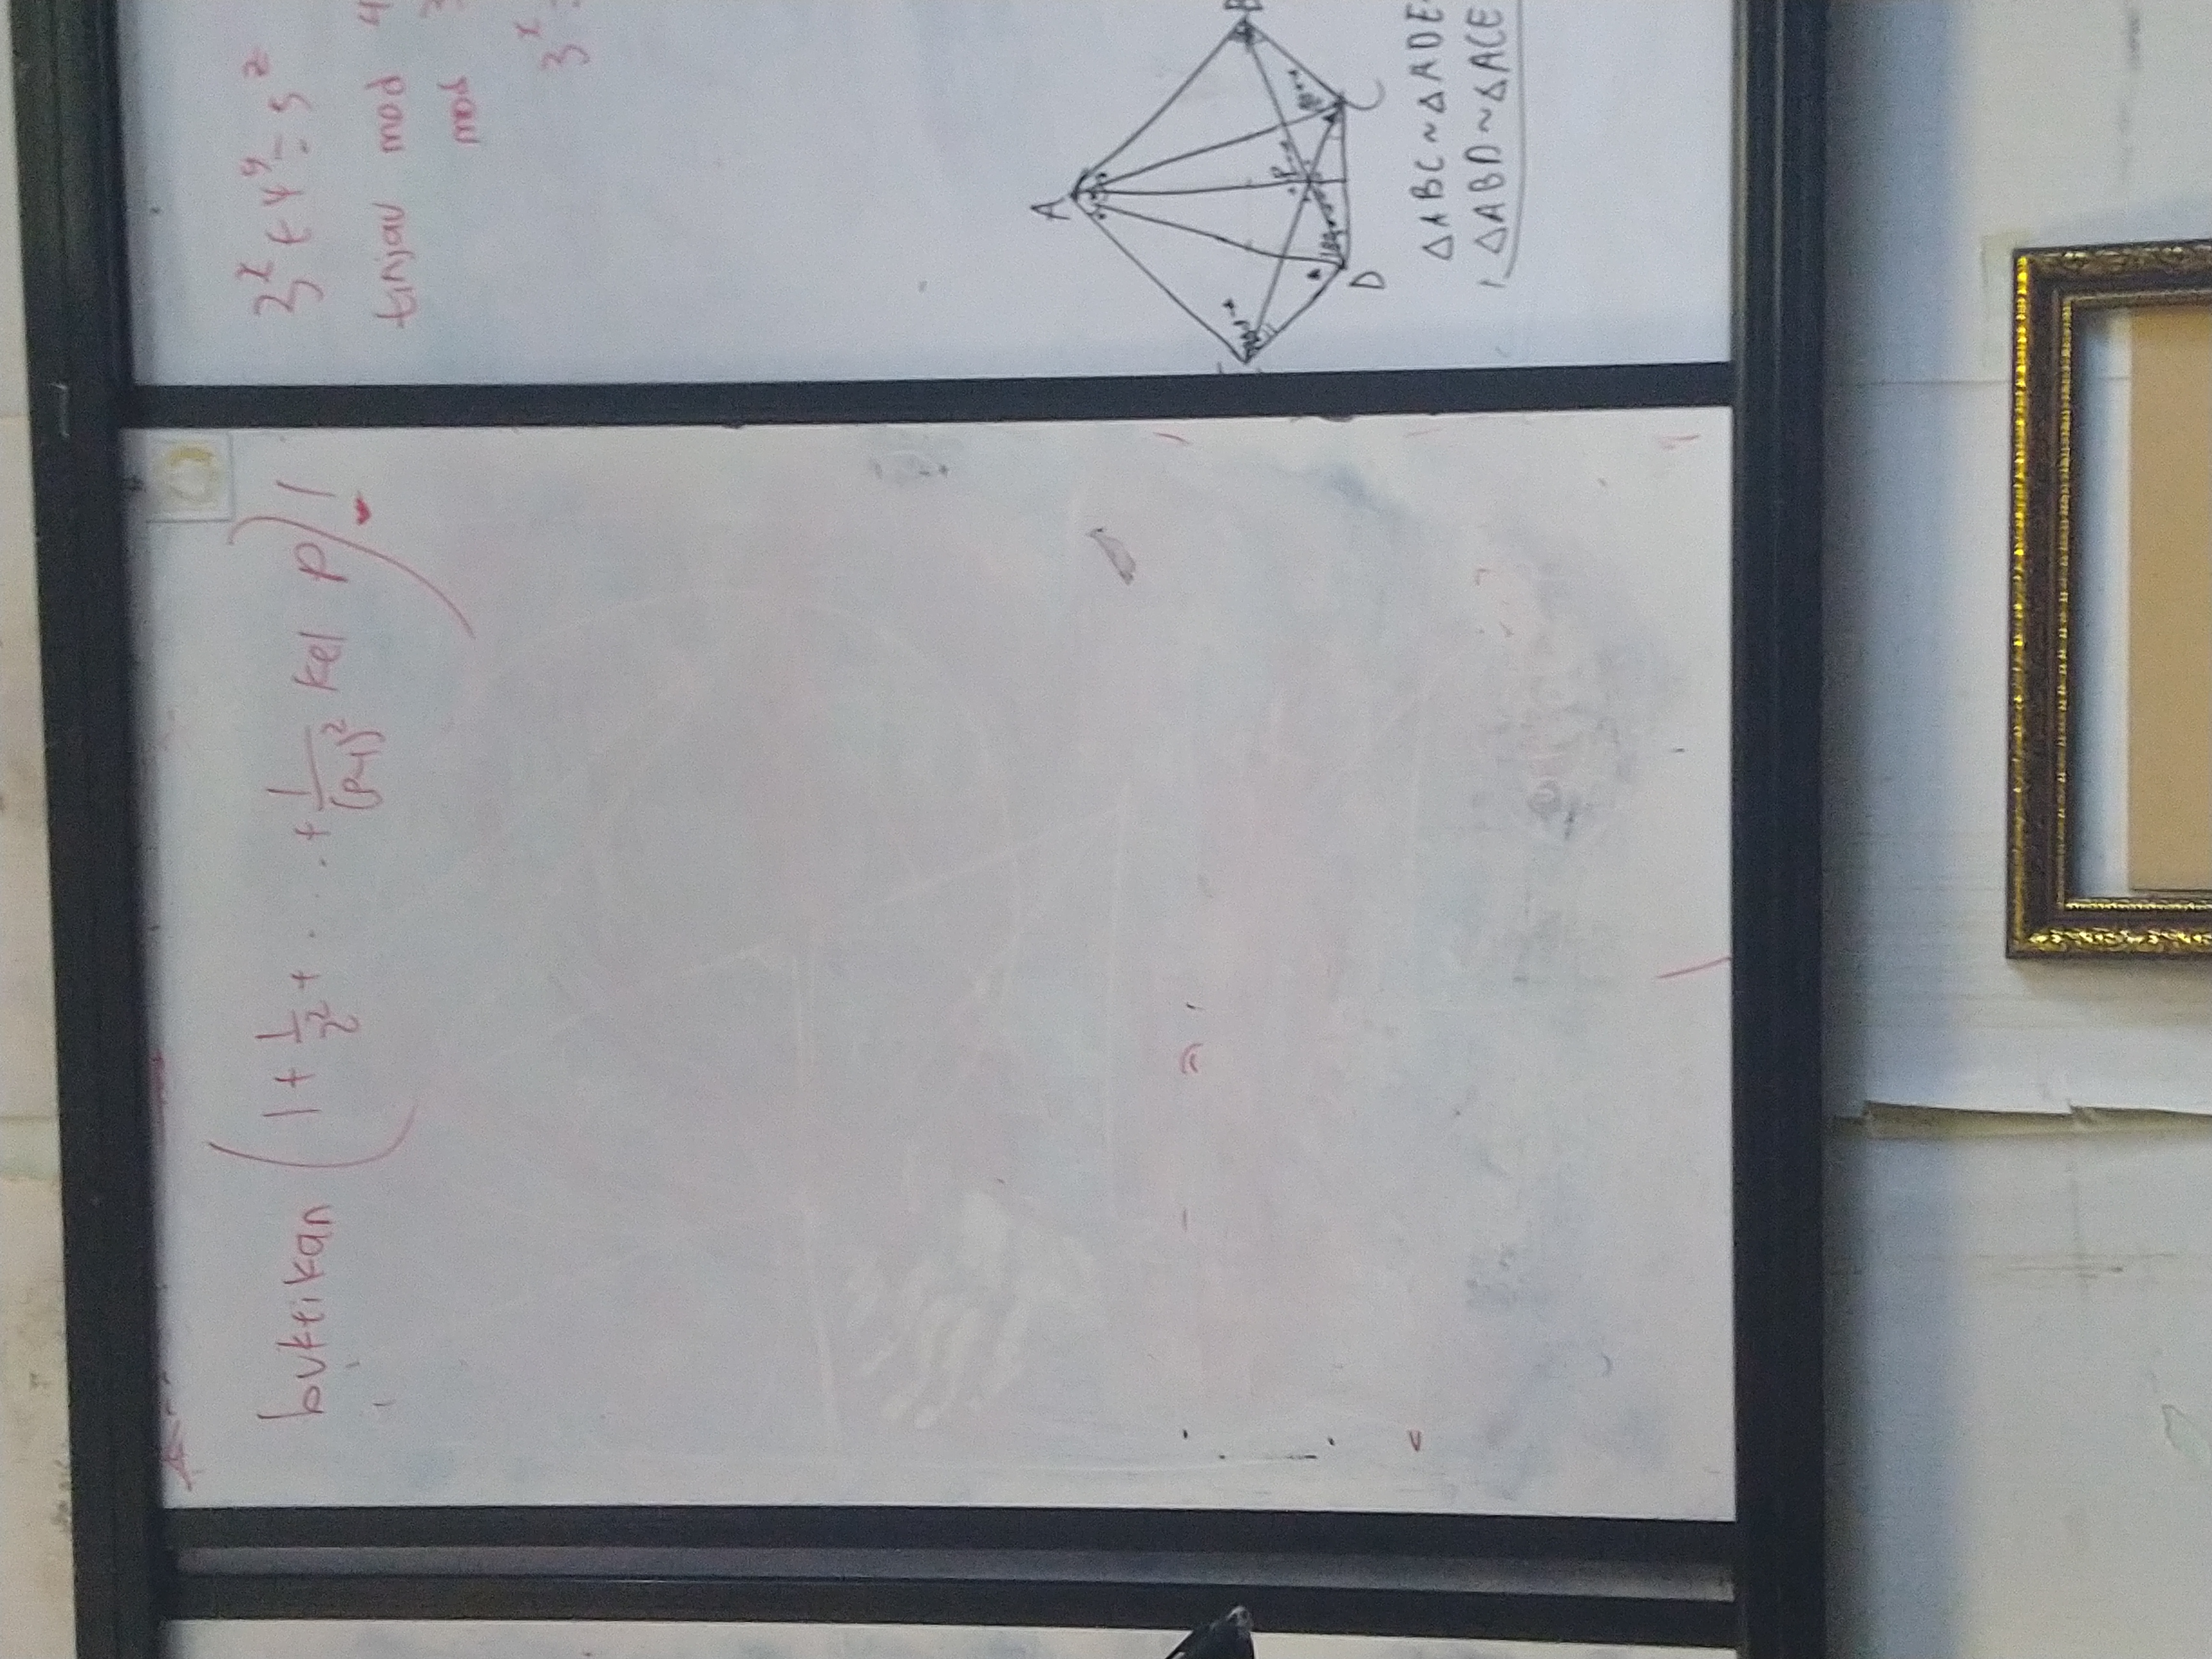 buktikan (1 + 1/2² + .... + 1/(p-1)² kel p)!
3^x + 4^y = 5^z
tinjau mod 4
mod 3
3^x =
A
B
P
D
C
△ABC ~ △ADE
△ABD ~ △ACE